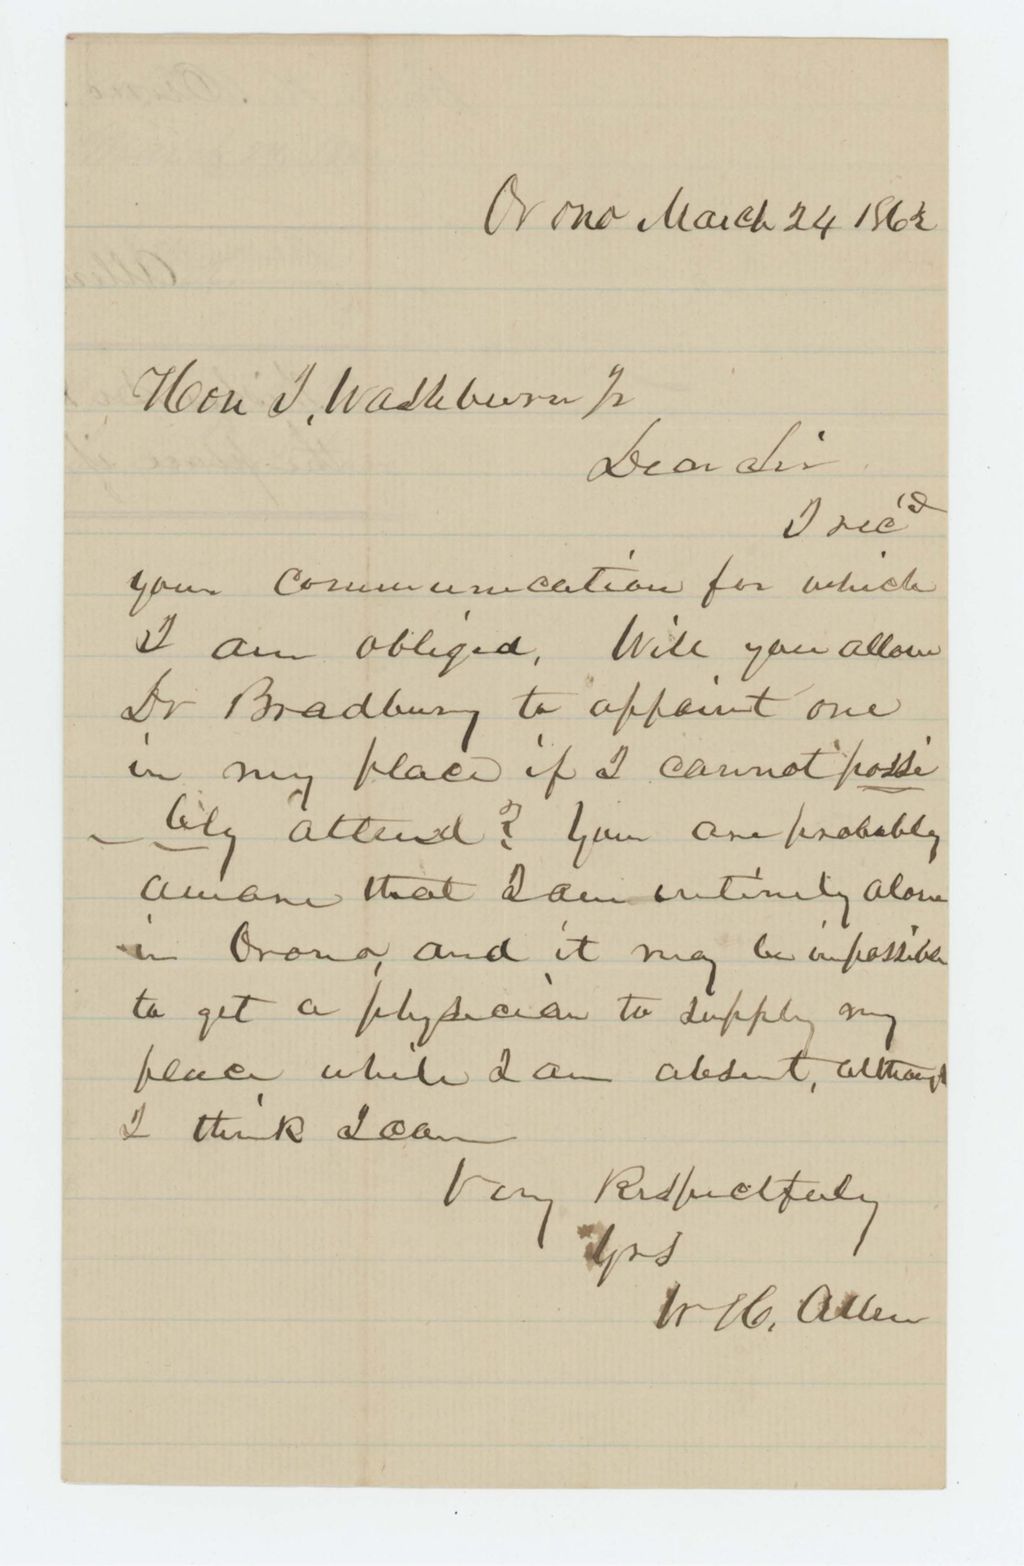 Orono March 24 1862
Hon I, Washburn Jr
Dear Sir
I rec'd
your communication for which
I am obliged, Will you allow
Dr Bradbury to appoint one
in my place if I cannot possi
bly attend? You are probably
aware that I am entirely alone
in Orono, and it may be impossible
to get a physician to supply my
place while I am absent, although
I think I can
Very Respectfully
Yrs
W H, Allen